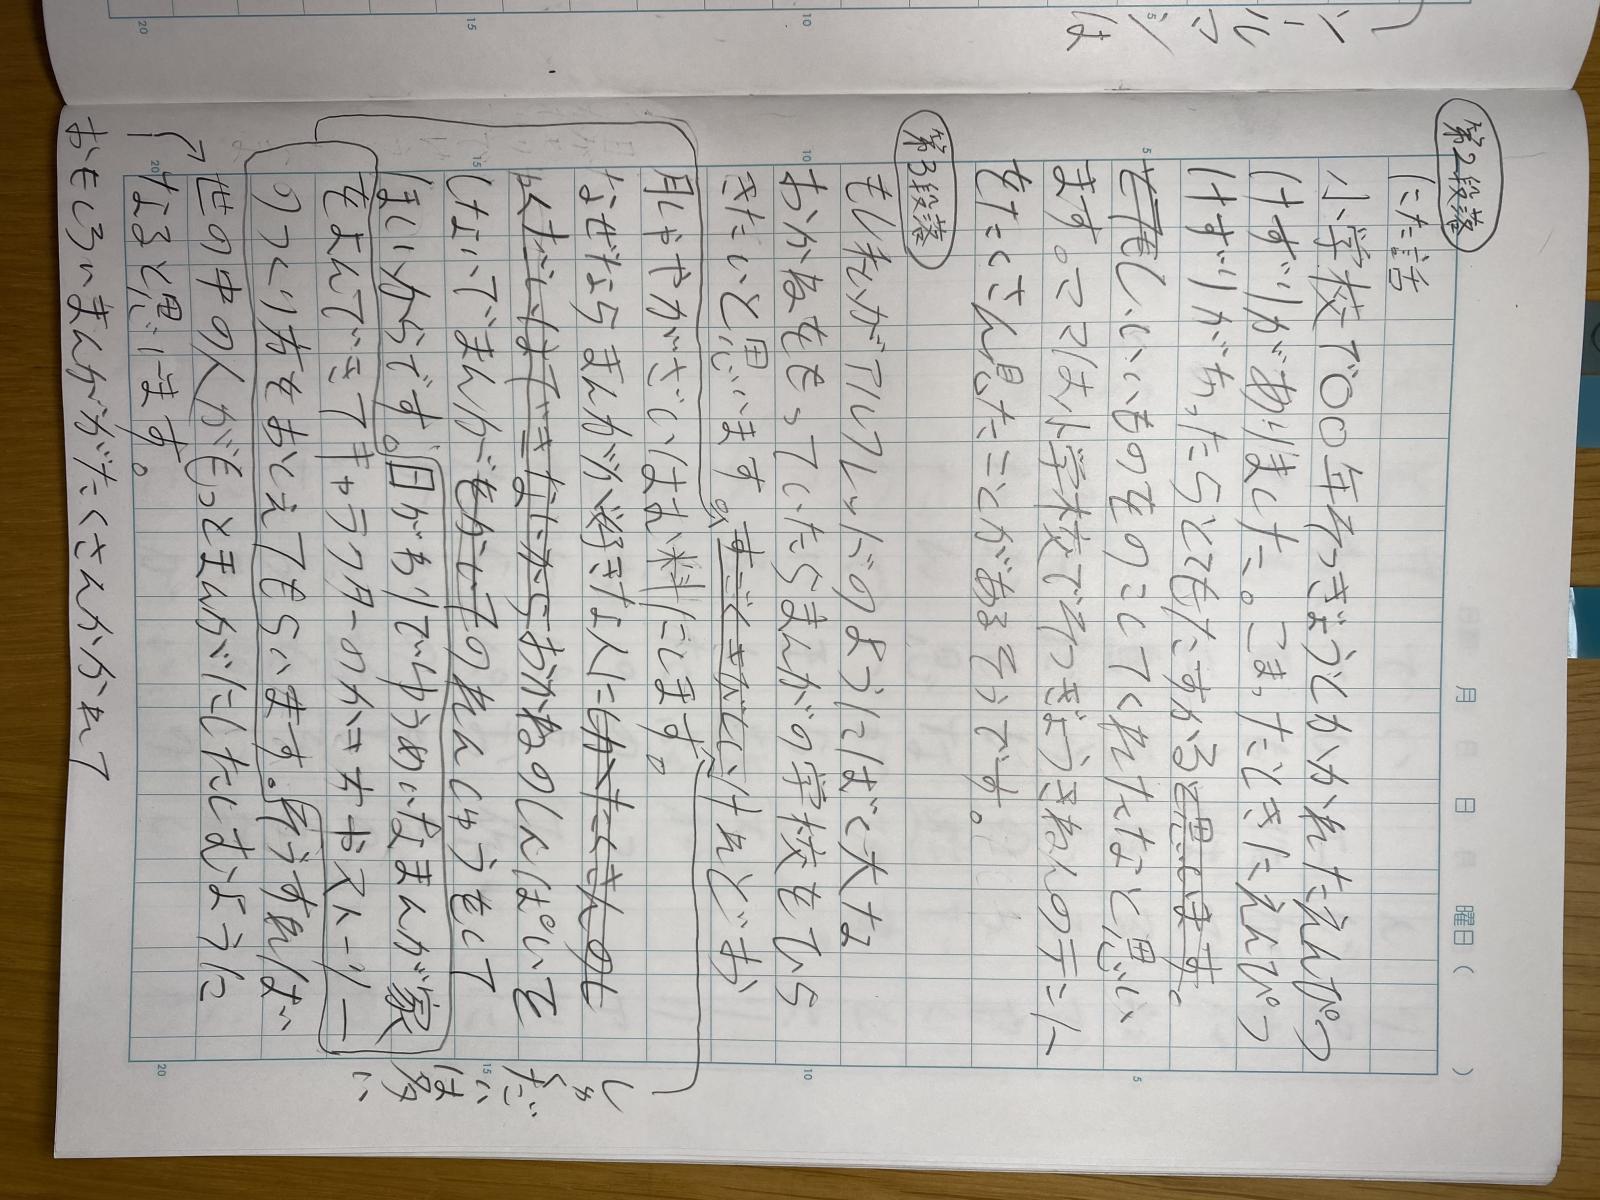 第2段落
にた話
小学校で〇〇年そつぎょうとかかれたえんぴつ
けずりがありました。こまったときにえんぴつ
けずりがあったらとてもたすかると思います。
とてもいいものをのこしてくれたなと思い
ます。ママは小学校でそつぎょうきねんのテニス
をたくさん見たことがあるそうです。
第3段落
もし私がアルフレッドのようにばく大な
おかねをもっていたらまんがの学校をひら
きたいと思います。すごくきびしいけれどお
月しゃやがざいはむ料にします。
なぜならまんがが好きな人にわたくさんのも
くひょうまできたからおかねのしんぱいを
しないでまんがをかくれんしゅうをして
ほしいからです。日がわりでゆうめいなまんが家
をよんできてキャラクターのかき方やストーリー
のつくり方をおしえてもらいます。そうすれば
世の中の人がもっとまんがにしたしむように
なると思います。
おもしろいまんががたくさんかかれて
しゅくだいは多い
ソールマンは
月 日 曜日( )
5
10
15
20